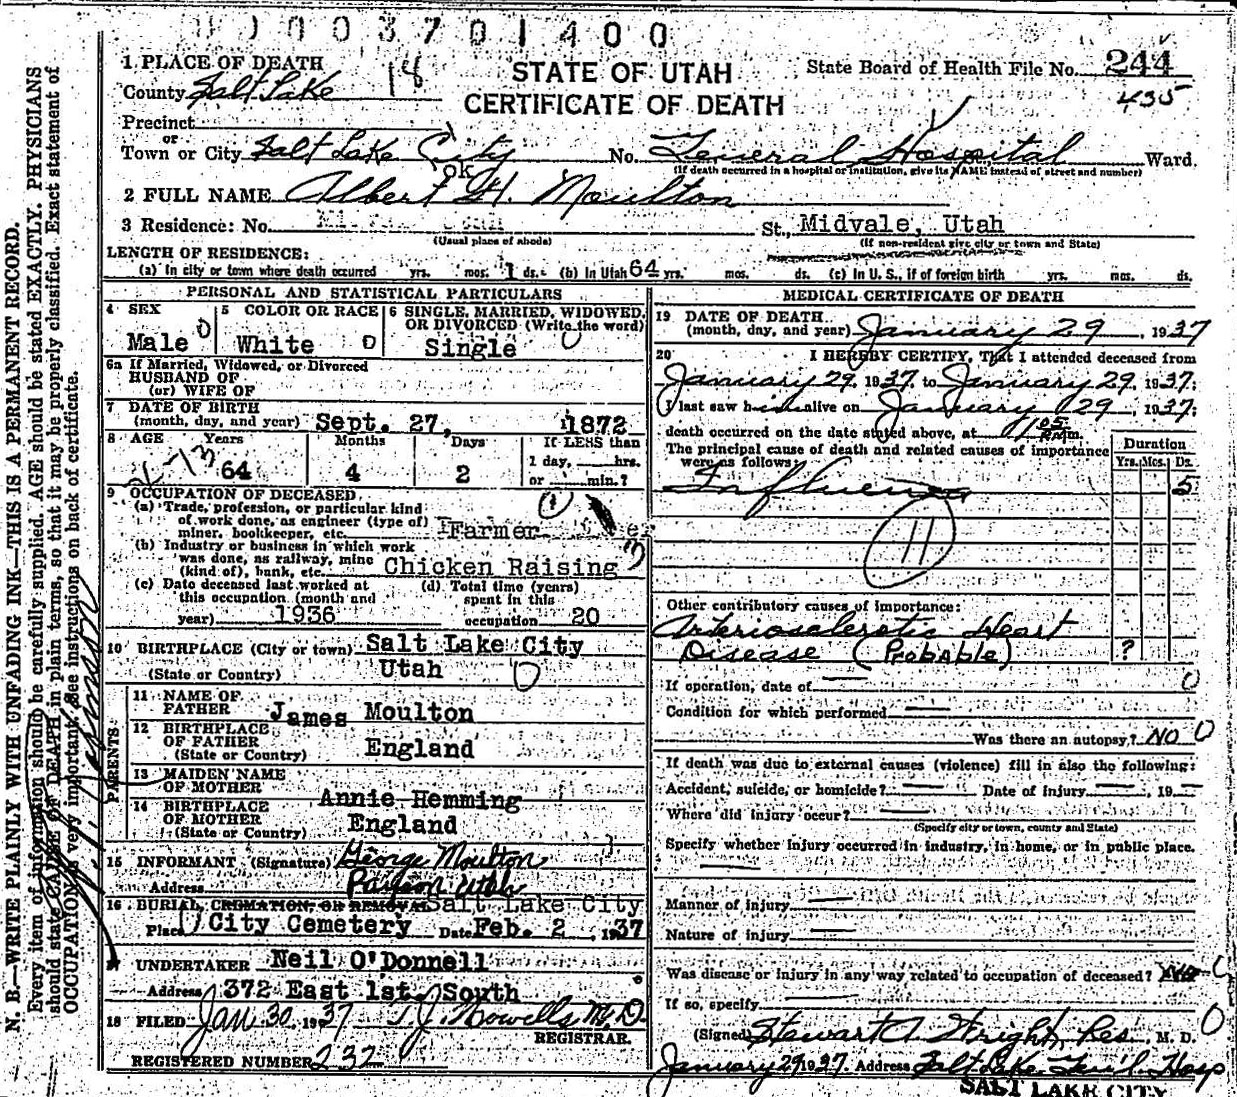 0003701400
1 PLACE OF DEATH
County Salt Lake 18
STATE OF UTAH
CERTIFICATE OF DEATH
State Board of Health File No. 244
435
Precinct
or
Town or City Salt Lake City No. General Hospital Ward.
(If death occurred in a hospital or institution, give its NAME instead of street and number)
ok
2 FULL NAME Albert H. Moulton
3 Residence: No. St., Midvale, Utah
(Usual place of abode) (If non-resident give city or town and State)
LENGTH OF RESIDENCE:
(a) In city or town where death occurred yrs. mos. 1 ds. (b) In Utah 64 yrs. mos. ds. (c) In U. S., if of foreign birth yrs. mos. ds.
PERSONAL AND STATISTICAL PARTICULARS
4 SEX
Male 0
5 COLOR OR RACE
White 0
6 SINGLE, MARRIED, WIDOWED,
OR DIVORCED (Write the word)
Single 0
6a If Married, Widowed, or Divorced
HUSBAND OF
(or) WIFE OF
7 DATE OF BIRTH
(month, day, and year) Sept. 27, 1872
8 AGE Years Months Days If LESS than
1 day, hrs.
or min.?
64 4 2
9 OCCUPATION OF DECEASED
(a) Trade, profession, or particular kind
of work done, as engineer (type of)
miner, bookkeeper, etc. Farmer
(b) Industry or business in which work
was done, as railway, mine
(kind of), bank, etc. Chicken Raising
(c) Date deceased last worked at
this occupation (month and
year) 1936
(d) Total time (years)
spent in this
occupation 20
10 BIRTHPLACE (City or town) Salt Lake City
(State or Country) Utah 0
PARENTS
11 NAME OF
FATHER James Moulton
12 BIRTHPLACE
OF FATHER
(State or Country) England
13 MAIDEN NAME
OF MOTHER Annie Hemming
14 BIRTHPLACE
OF MOTHER
(State or Country) England
15 INFORMANT (Signature) George Moulton
Address Payson Utah
16 BURIAL, CREMATION, OR REMOVAL Salt Lake City
Place City Cemetery Date Feb. 2, 1937
17 UNDERTAKER Neil O'Donnell
Address 372 East 1st. South
18 FILED Jan 30, 1937 T. J. Howells M.D.
REGISTRAR.
REGISTERED NUMBER 232
MEDICAL CERTIFICATE OF DEATH
19 DATE OF DEATH
(month, day, and year) January 29, 1937
20 I HEREBY CERTIFY, That I attended deceased from
January 29, 1937, to January 29, 1937;
I last saw him alive on January 29, 1937;
death occurred on the date stated above, at 1 05 P.m.
The principal cause of death and related causes of importance
were as follows:
Duration
Yrs. Mos. Ds.
Influenza 5
11
Other contributory causes of importance:
Arteriosclerotic Heart
Disease (Probable) ?
If operation, date of 0
Condition for which performed
Was there an autopsy? NO 0
If death was due to external causes (violence) fill in also the following:
Accident, suicide, or homicide? Date of injury , 19
Where did injury occur?
(Specify city or town, county and State)
Specify whether injury occurred in industry, in home, or in public place.
Manner of injury
Nature of injury
Was disease or injury in any way related to occupation of deceased? No
If so, specify
(Signed) Stewart A. Wright, Res., M. D. 0
January 29 1937. Address Salt Lake Gen'l. Hosp
SALT LAKE CITY
N. B.—WRITE PLAINLY WITH UNFADING INK—THIS IS A PERMANENT RECORD.
Every item of information should be carefully supplied. AGE should be stated EXACTLY. PHYSICIANS
should state CAUSE OF DEATH in plain terms, so that it may be properly classified. Exact statement of
OCCUPATION is very important. See instructions on back of certificate.